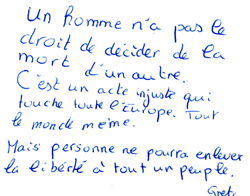 Un homme n'a pas le
droit de décider de la
mort d'un autre.
C'est un acte injuste qui
touche toute l'Europe. Tout
le monde même.
Mais personne ne pourra enlever
la liberté à tout un peuple.